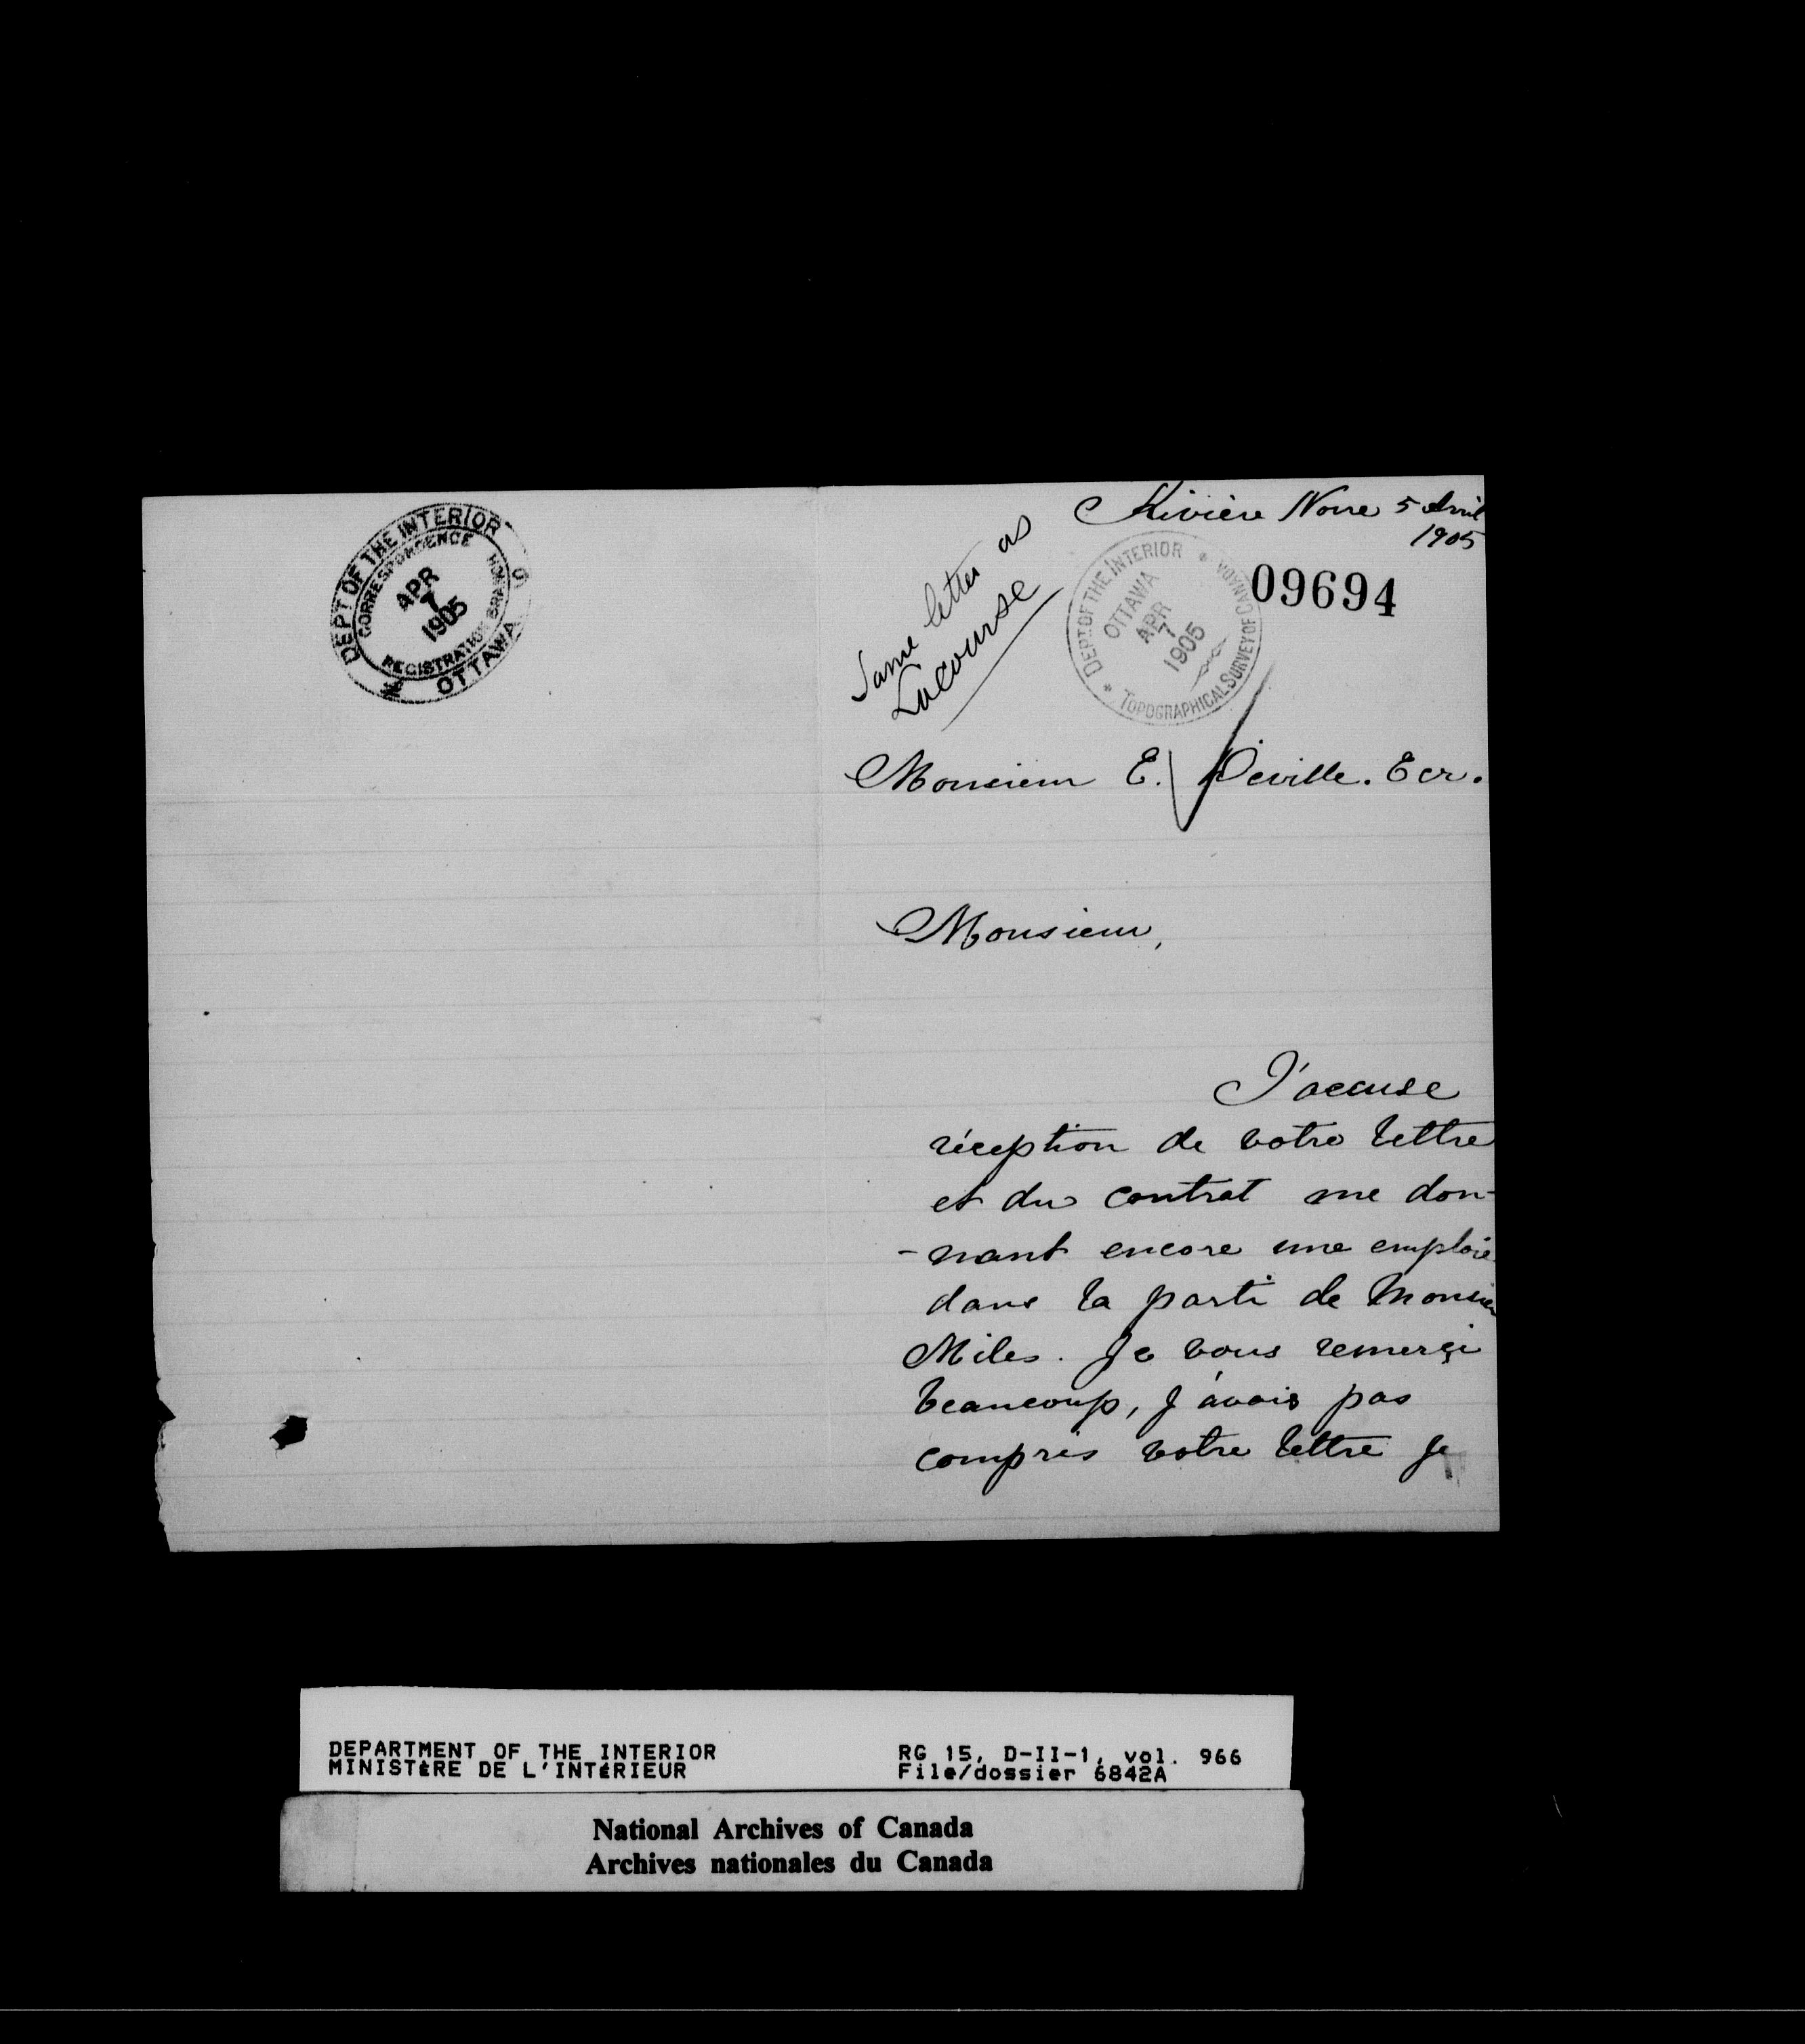 Rivière Noire 5 Avril
1905
DEPT OF THE INTERIOR
CORRESPONDENCE
APR
7
1905
REGISTRATION BRANCH
OTTAWA
Same letter as
Lacourse
DEPT OF THE INTERIOR
OTTAWA
APR
7
1905
TOPOGRAPHICAL SURVEY OF CANADA
09694
Monsieur E. Deville. Ecr.
Monsieur,
J'accuse
réception de votre lettre
et du contrat me don-
-nant encore une emploie
dans la parti de Monsieu
Miles. Je vous remerçi
beaucoup, j'avais pas
compris votre lettre je
DEPARTMENT OF THE INTERIOR
MINISTÈRE DE L'INTÉRIEUR
RG 15, D-II-1, vol. 966
File/dossier 6842A
National Archives of Canada
Archives nationales du Canada